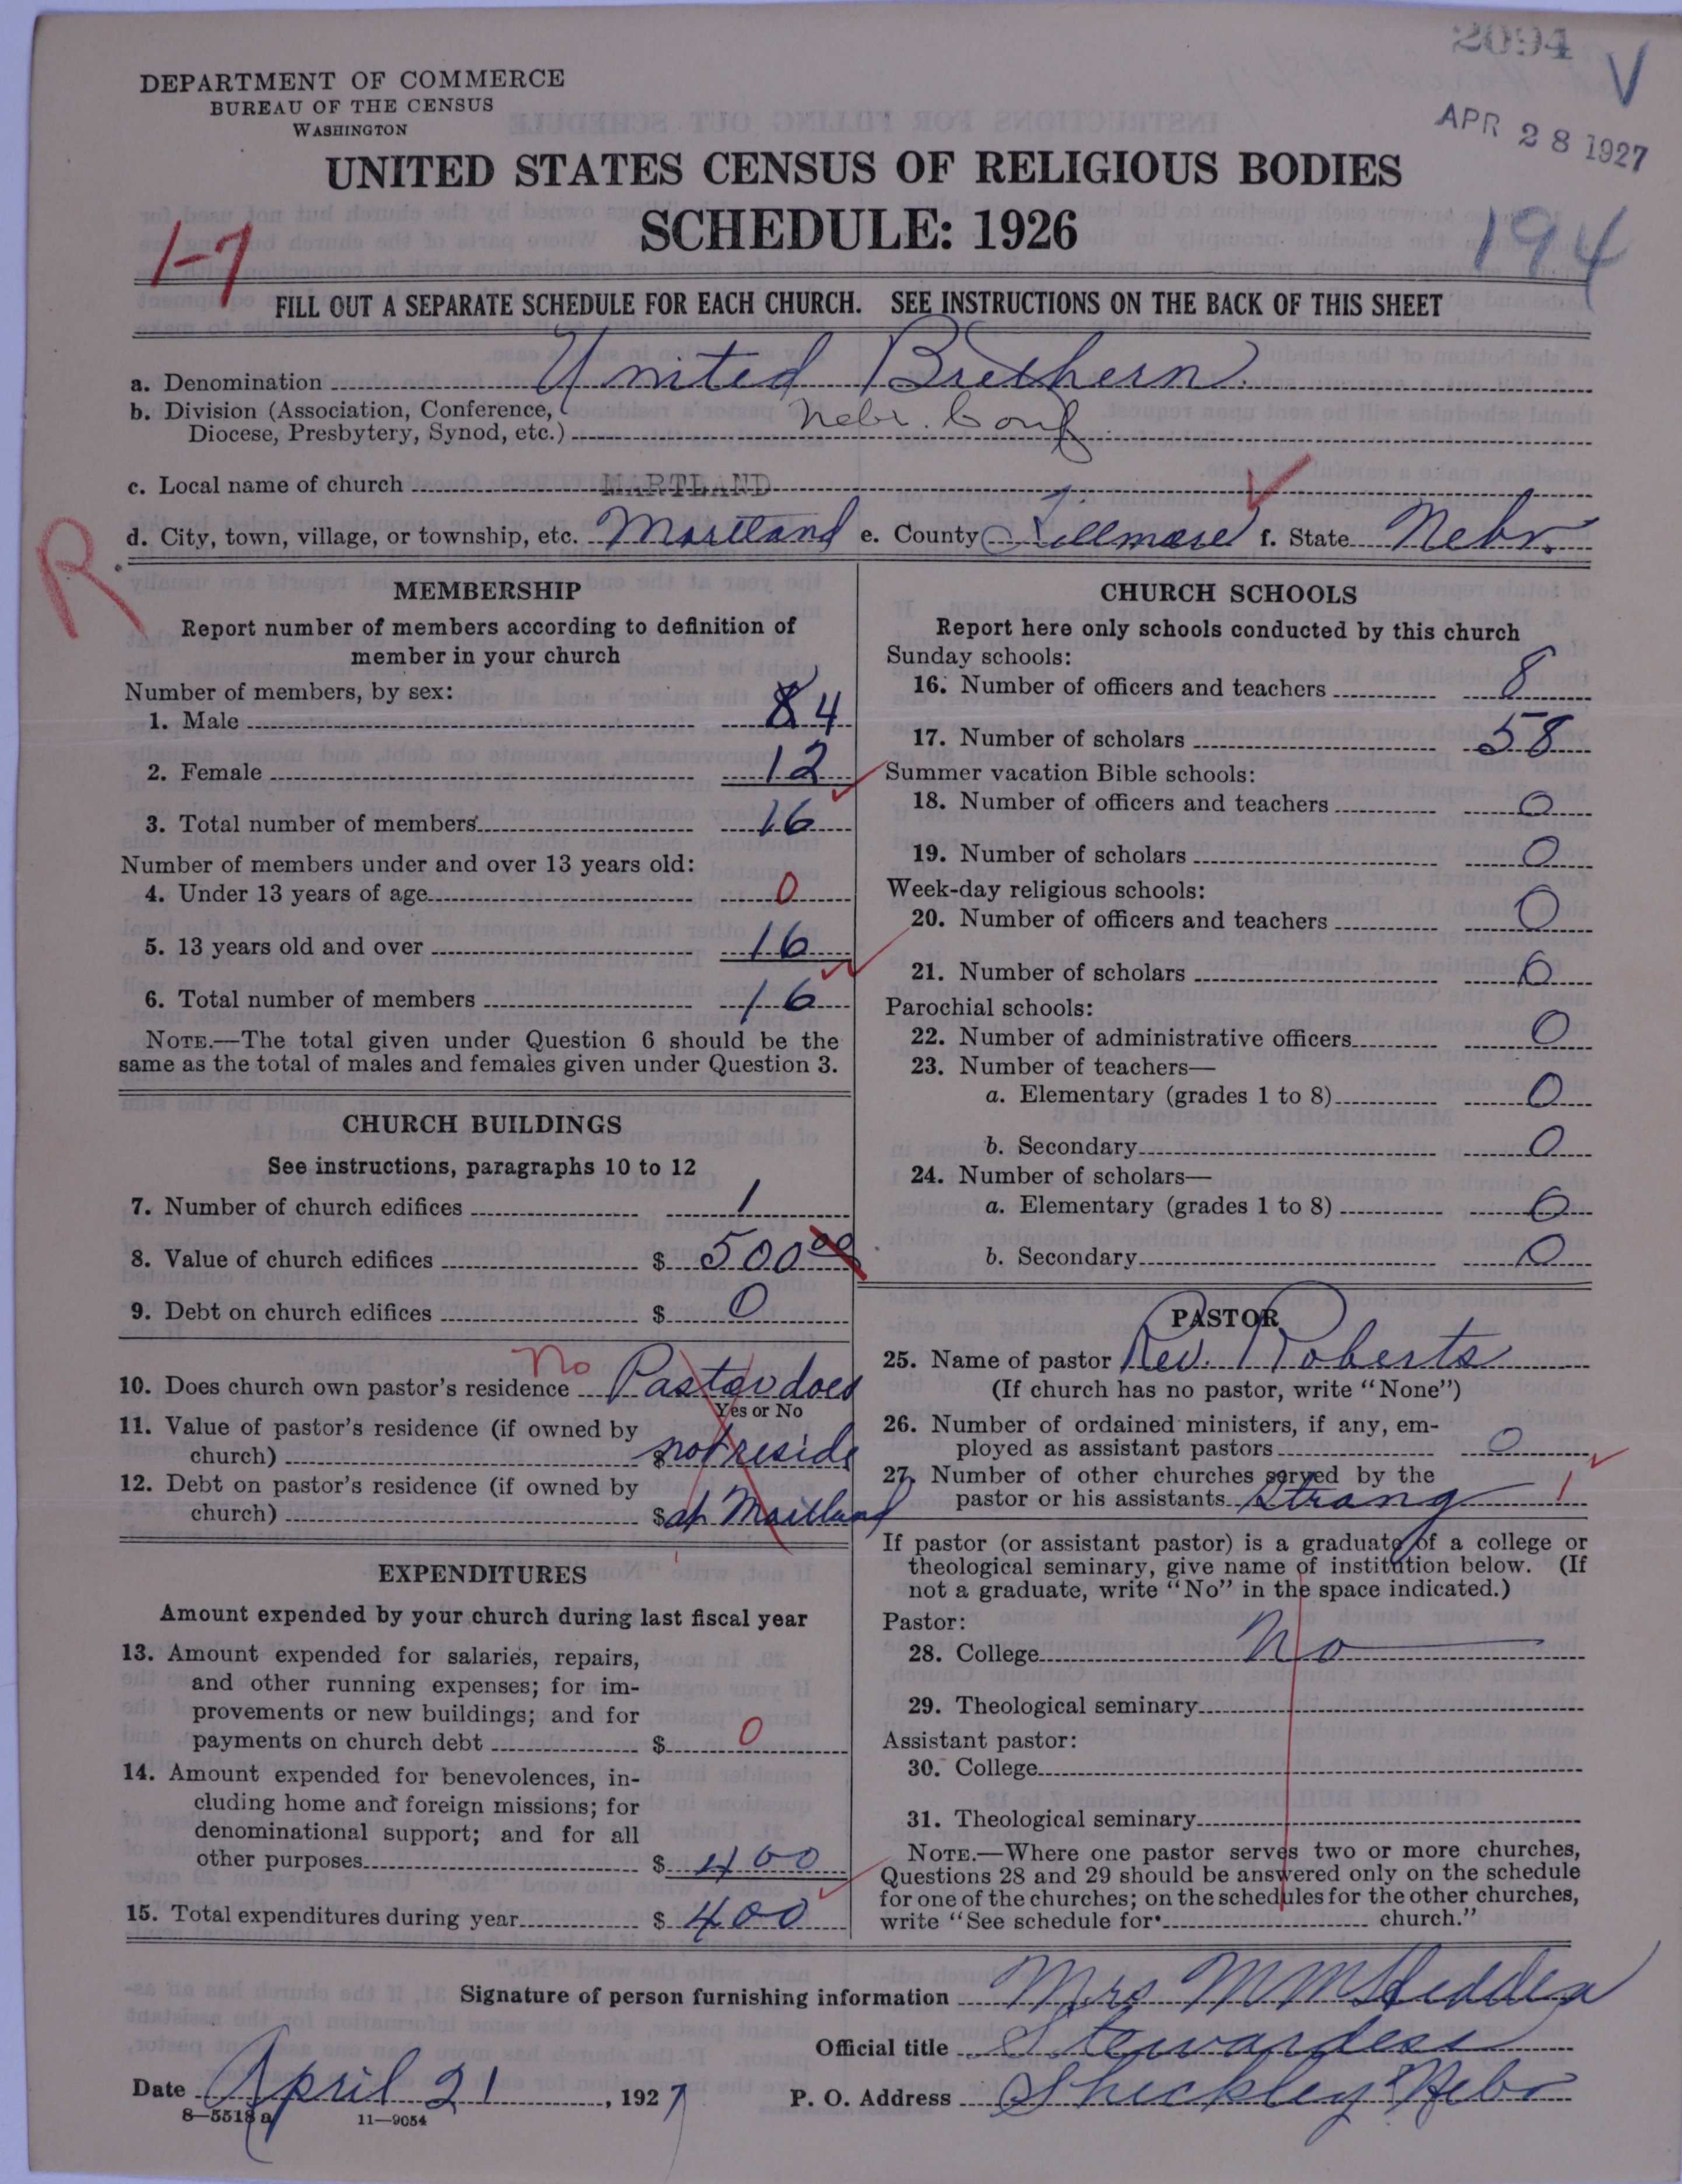 2094 V
APR 28 1927
DEPARTMENT OF COMMERCE
BUREAU OF THE CENSUS
WASHINGTON
UNITED STATES CENSUS OF RELIGIOUS BODIES
SCHEDULE: 1926
1-7
194
FILL OUT A SEPARATE SCHEDULE FOR EACH CHURCH. SEE INSTRUCTIONS ON THE BACK OF THIS SHEET
a. Denomination United Brethern
b. Division (Association, Conference,
Diocese, Presbytery, Synod, etc.) Nebr. Conf
c. Local name of church MARTLAND
d. City, town, village, or township, etc. Martland e. County Fillmore f. State Nebr.
R
MEMBERSHIP
Report number of members according to definition of
member in your church
Number of members, by sex:
1. Male 4
2. Female 12
3. Total number of members 16
Number of members under and over 13 years old:
4. Under 13 years of age 0
5. 13 years old and over 16
6. Total number of members 16
NOTE.—The total given under Question 6 should be the
same as the total of males and females given under Question 3.
CHURCH BUILDINGS
See instructions, paragraphs 10 to 12
7. Number of church edifices 1
8. Value of church edifices $ 500 00
9. Debt on church edifices $ 0
10. Does church own pastor's residence No Pastor does
Yes or No
11. Value of pastor's residence (if owned by
church) $ not reside
12. Debt on pastor's residence (if owned by
church) $ at Maitland
EXPENDITURES
Amount expended by your church during last fiscal year
13. Amount expended for salaries, repairs,
and other running expenses; for im-
provements or new buildings; and for
payments on church debt $ 0
14. Amount expended for benevolences, in-
cluding home and foreign missions; for
denominational support; and for all
other purposes $ 400
15. Total expenditures during year $ 400
CHURCH SCHOOLS
Report here only schools conducted by this church
Sunday schools:
16. Number of officers and teachers 8
17. Number of scholars 58
Summer vacation Bible schools:
18. Number of officers and teachers 0
19. Number of scholars 0
Week-day religious schools:
20. Number of officers and teachers 0
21. Number of scholars 0
Parochial schools:
22. Number of administrative officers 0
23. Number of teachers—
a. Elementary (grades 1 to 8) 0
b. Secondary 0
24. Number of scholars—
a. Elementary (grades 1 to 8) 0
b. Secondary 0
PASTOR
25. Name of pastor Rev. Roberts
(If church has no pastor, write "None")
26. Number of ordained ministers, if any, em-
ployed as assistant pastors 0
27. Number of other churches served by the
pastor or his assistants Strang 1
If pastor (or assistant pastor) is a graduate of a college or
theological seminary, give name of institution below. (If
not a graduate, write "No" in the space indicated.)
Pastor:
28. College No
29. Theological seminary
Assistant pastor:
30. College
31. Theological seminary
NOTE.—Where one pastor serves two or more churches,
Questions 28 and 29 should be answered only on the schedule
for one of the churches; on the schedules for the other churches,
write "See schedule for church."
Signature of person furnishing information Mrs M M
Official title Stewardess
Date April 21, 1927 P. O. Address Shickley Nebr
8—5518 a 11—9054